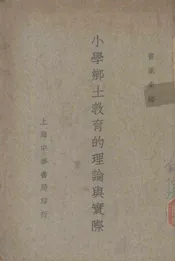 小學鄉土教育的理論與實際
上海中華書局印行